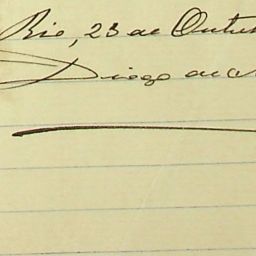 Rio, 23 de Outu
Diogo de A